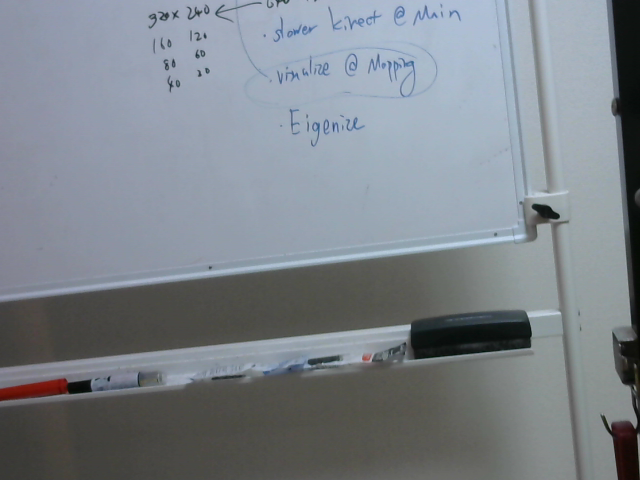 320 x 240
160 120
80 60
40 30
· slower kinect @ Main
· visualize @ Mapping
· Eigenize